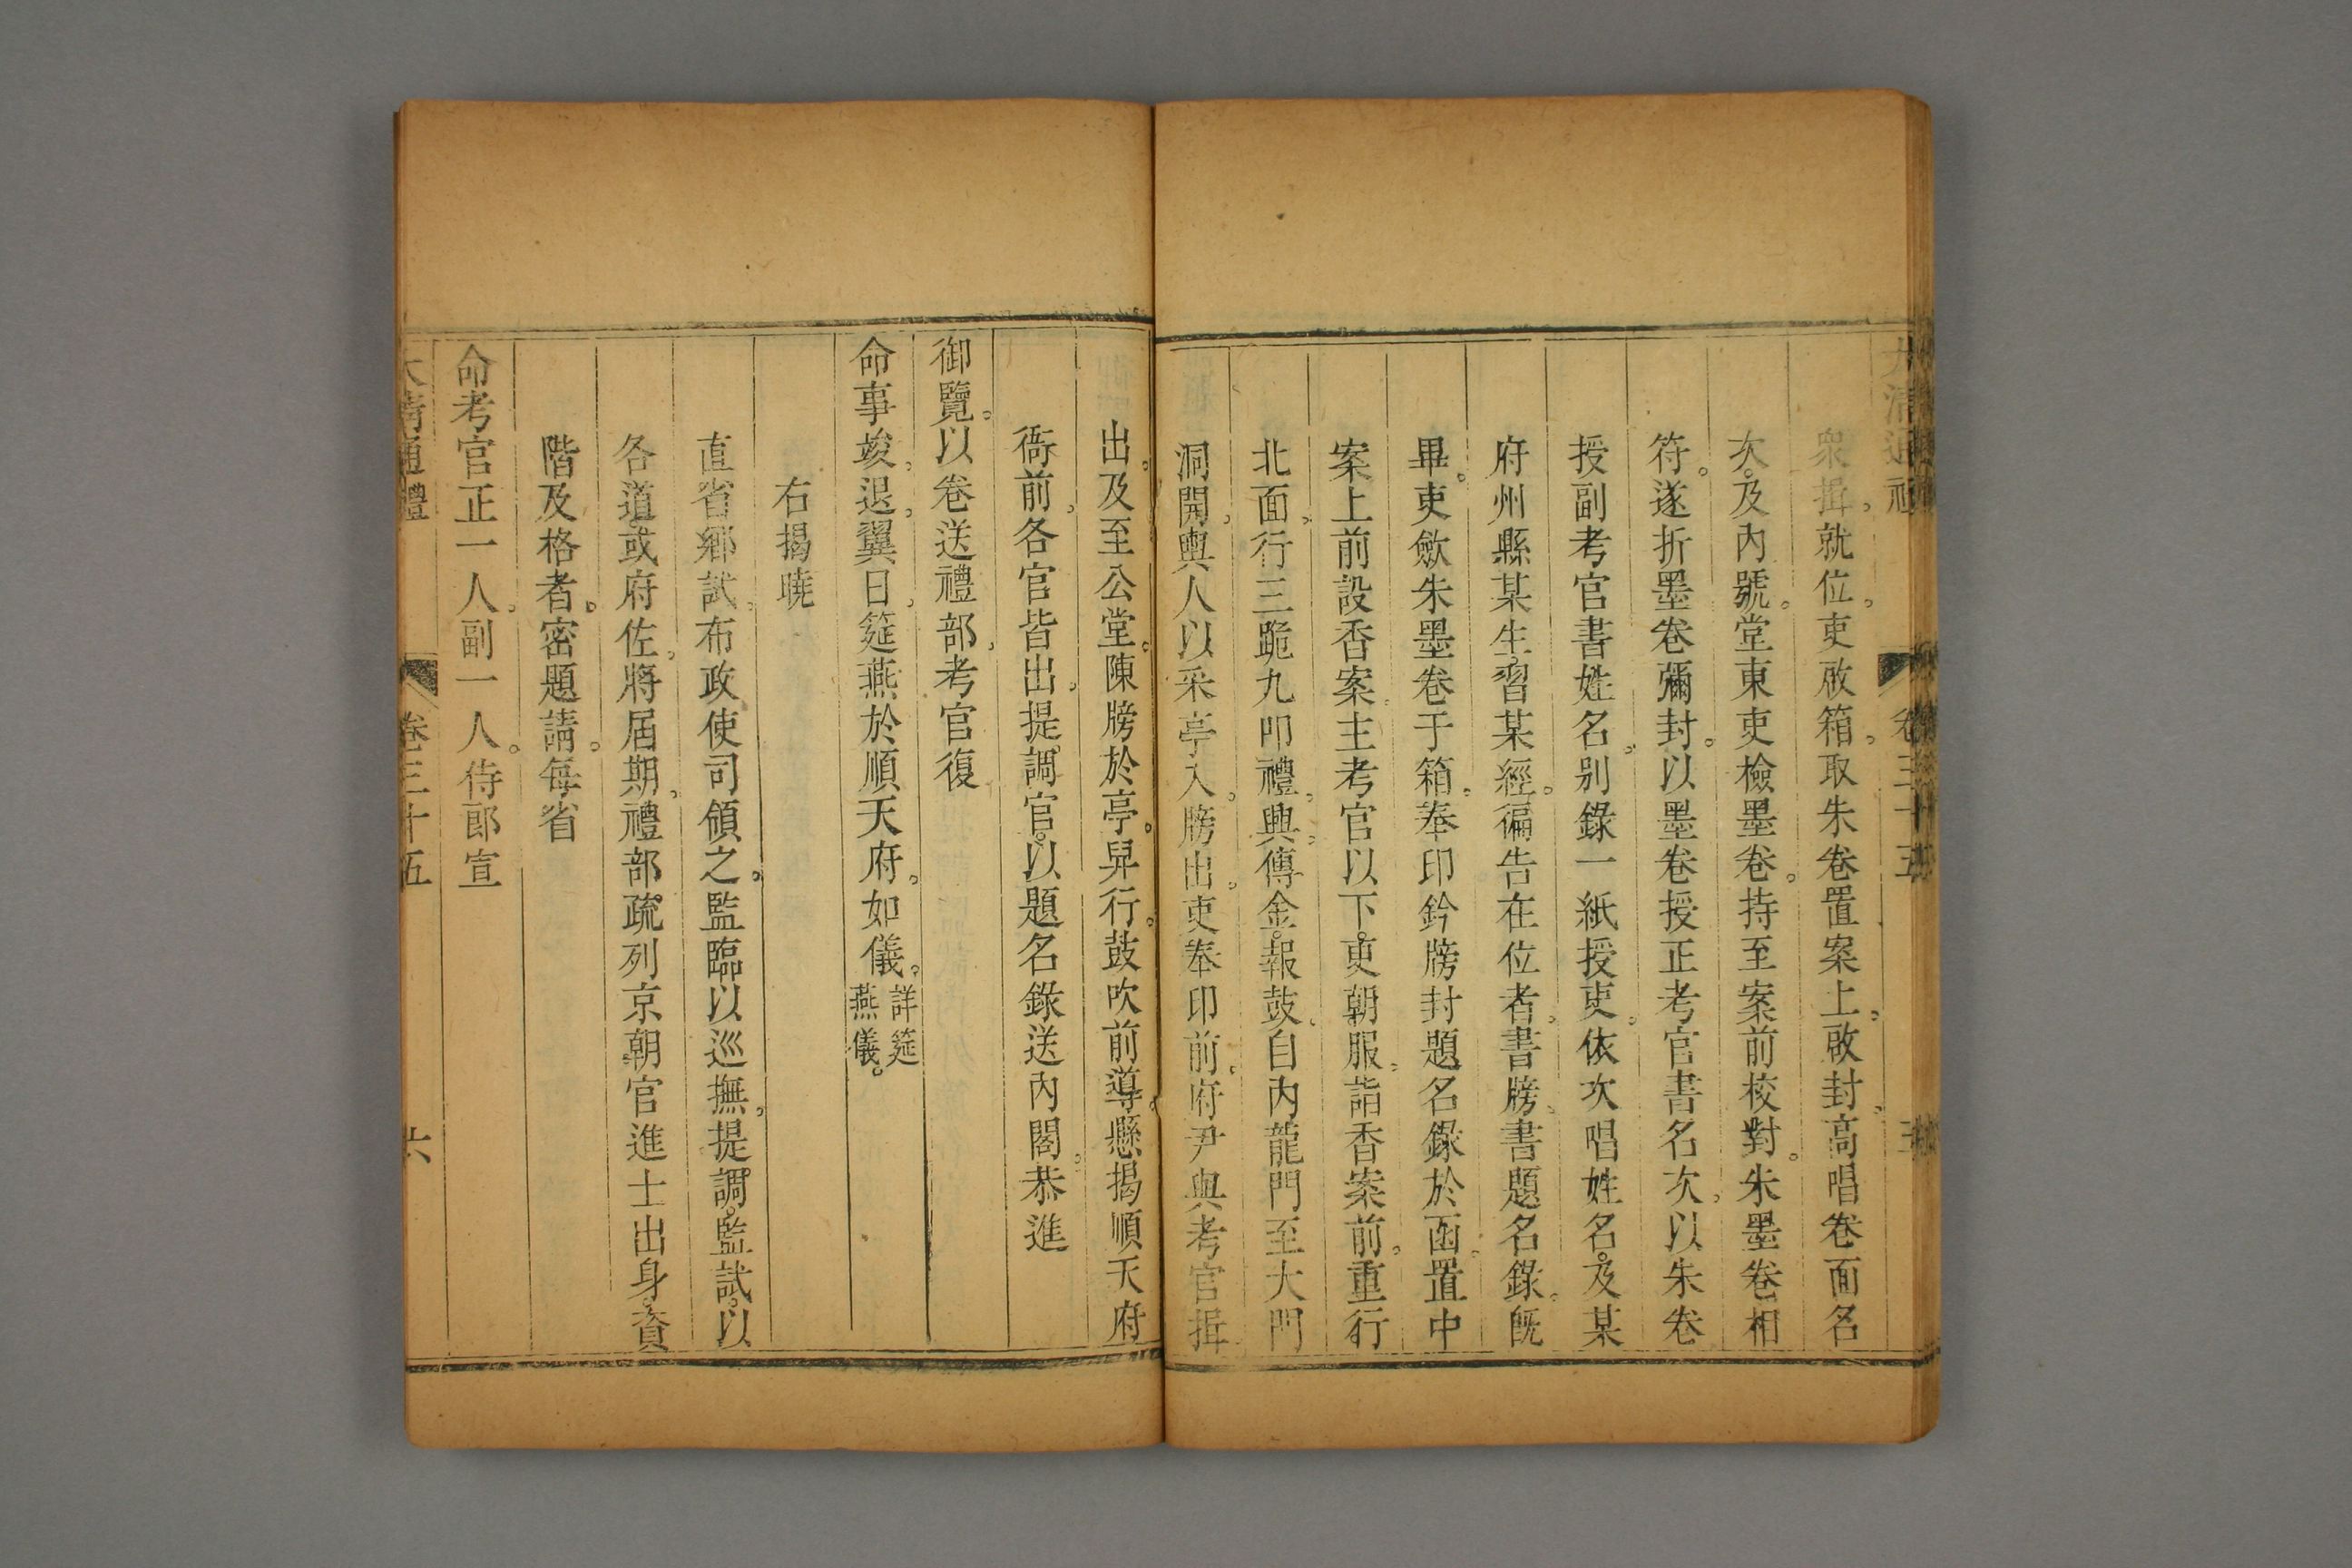 大清通禮 卷三十五 五
衆揖。就位。吏啟箱。取朱卷置案上。啟封。高唱卷面名
次。及內號。堂東吏檢墨卷。持至案前校對。朱墨卷相
符。遂折墨卷彌封。以墨卷授正考官書名次。以朱卷
授副考官書姓名。别錄一紙授吏。依次唱姓名。及某
府州縣某生。習某經。徧告在位者。書牓。書題名錄。旣
畢。吏斂朱墨卷于箱。奉印鈐牓封題名錄於函。置中
案上前設香案。主考官以下。吏朝服。詣香案前。重行
北面。行三跪九叩禮。興。傳金。報鼓。自內龍門至大門
洞開。輿人以采亭入。牓出。吏奉印前。府尹與考官揖
出。及至公堂。陳牓於亭。舁行。鼓吹前導。懸揭順天府
衙前。各官皆出。提調官。以題名錄送內閣。恭進
御覽。以卷送禮部。考官復
命事竣。退。翼日。筵燕於順天府。如儀。詳筵
燕儀。
右揭曉
直省鄉試。布政使司領之。監臨以巡撫。提調。監試。以
各道或府佐。將屆期。禮部疏列京朝官進士出身。資
階及格者。密題請。每省
命考官正一人。副一人。侍郎宣
大清通禮 卷三十五 六